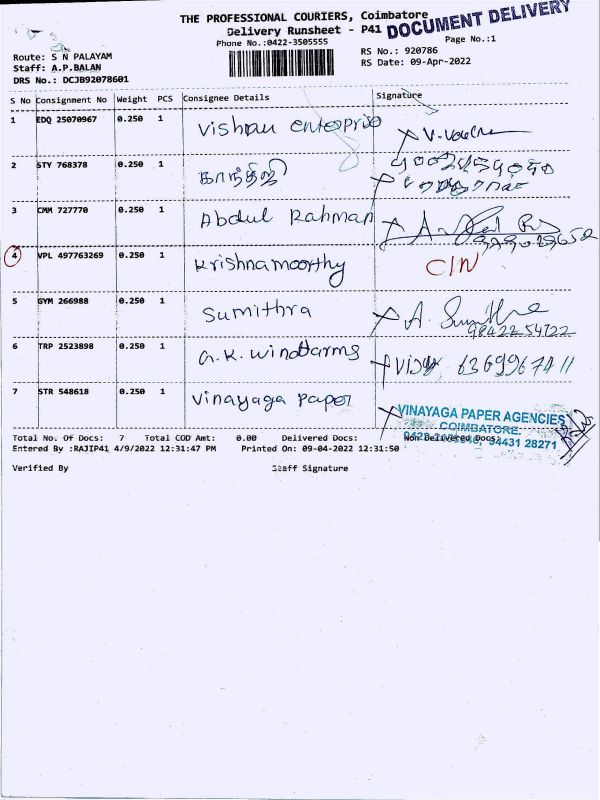 THE PROFESSIONAL COURIERS, Coimbatore
DOCUMENT DELIVERY
Delivery Runsheet - P41
Phone No.:0422-3505555
Page No.:1
Route: S N PALAYAM
Staff: A.P.BALAN
DRS No.: DCJB92078601
RS No.: 920786
RS Date: 09-Apr-2022
S No Consignment No Weight PCS Consignee Details Signature
1 EDQ 25070967 0.250 1 Vishnu enterprise
2 STY 768378 0.250 1 காந்திஜி
3 CMM 727770 0.250 1 Abdul Rahman
4 VPL 497763269 0.250 1 Krishnamoorthy CIN
5 GYM 266988 0.250 1 Sumithra A. Sumithra
98422 54722
6 TRP 2523898 0.250 1 G.K. Windfarms 6369967411
7 STR 548618 0.250 1 Vinayaga Paper
VINAYAGA PAPER AGENCIES
COIMBATORE.
94431 28271
Total No. Of Docs: 7 Total COD Amt: 0.00 Delivered Docs: Non Delivered Docs:
Entered By :RAJIP41 4/9/2022 12:31:47 PM Printed On: 09-04-2022 12:31:50
Verified By Staff Signature